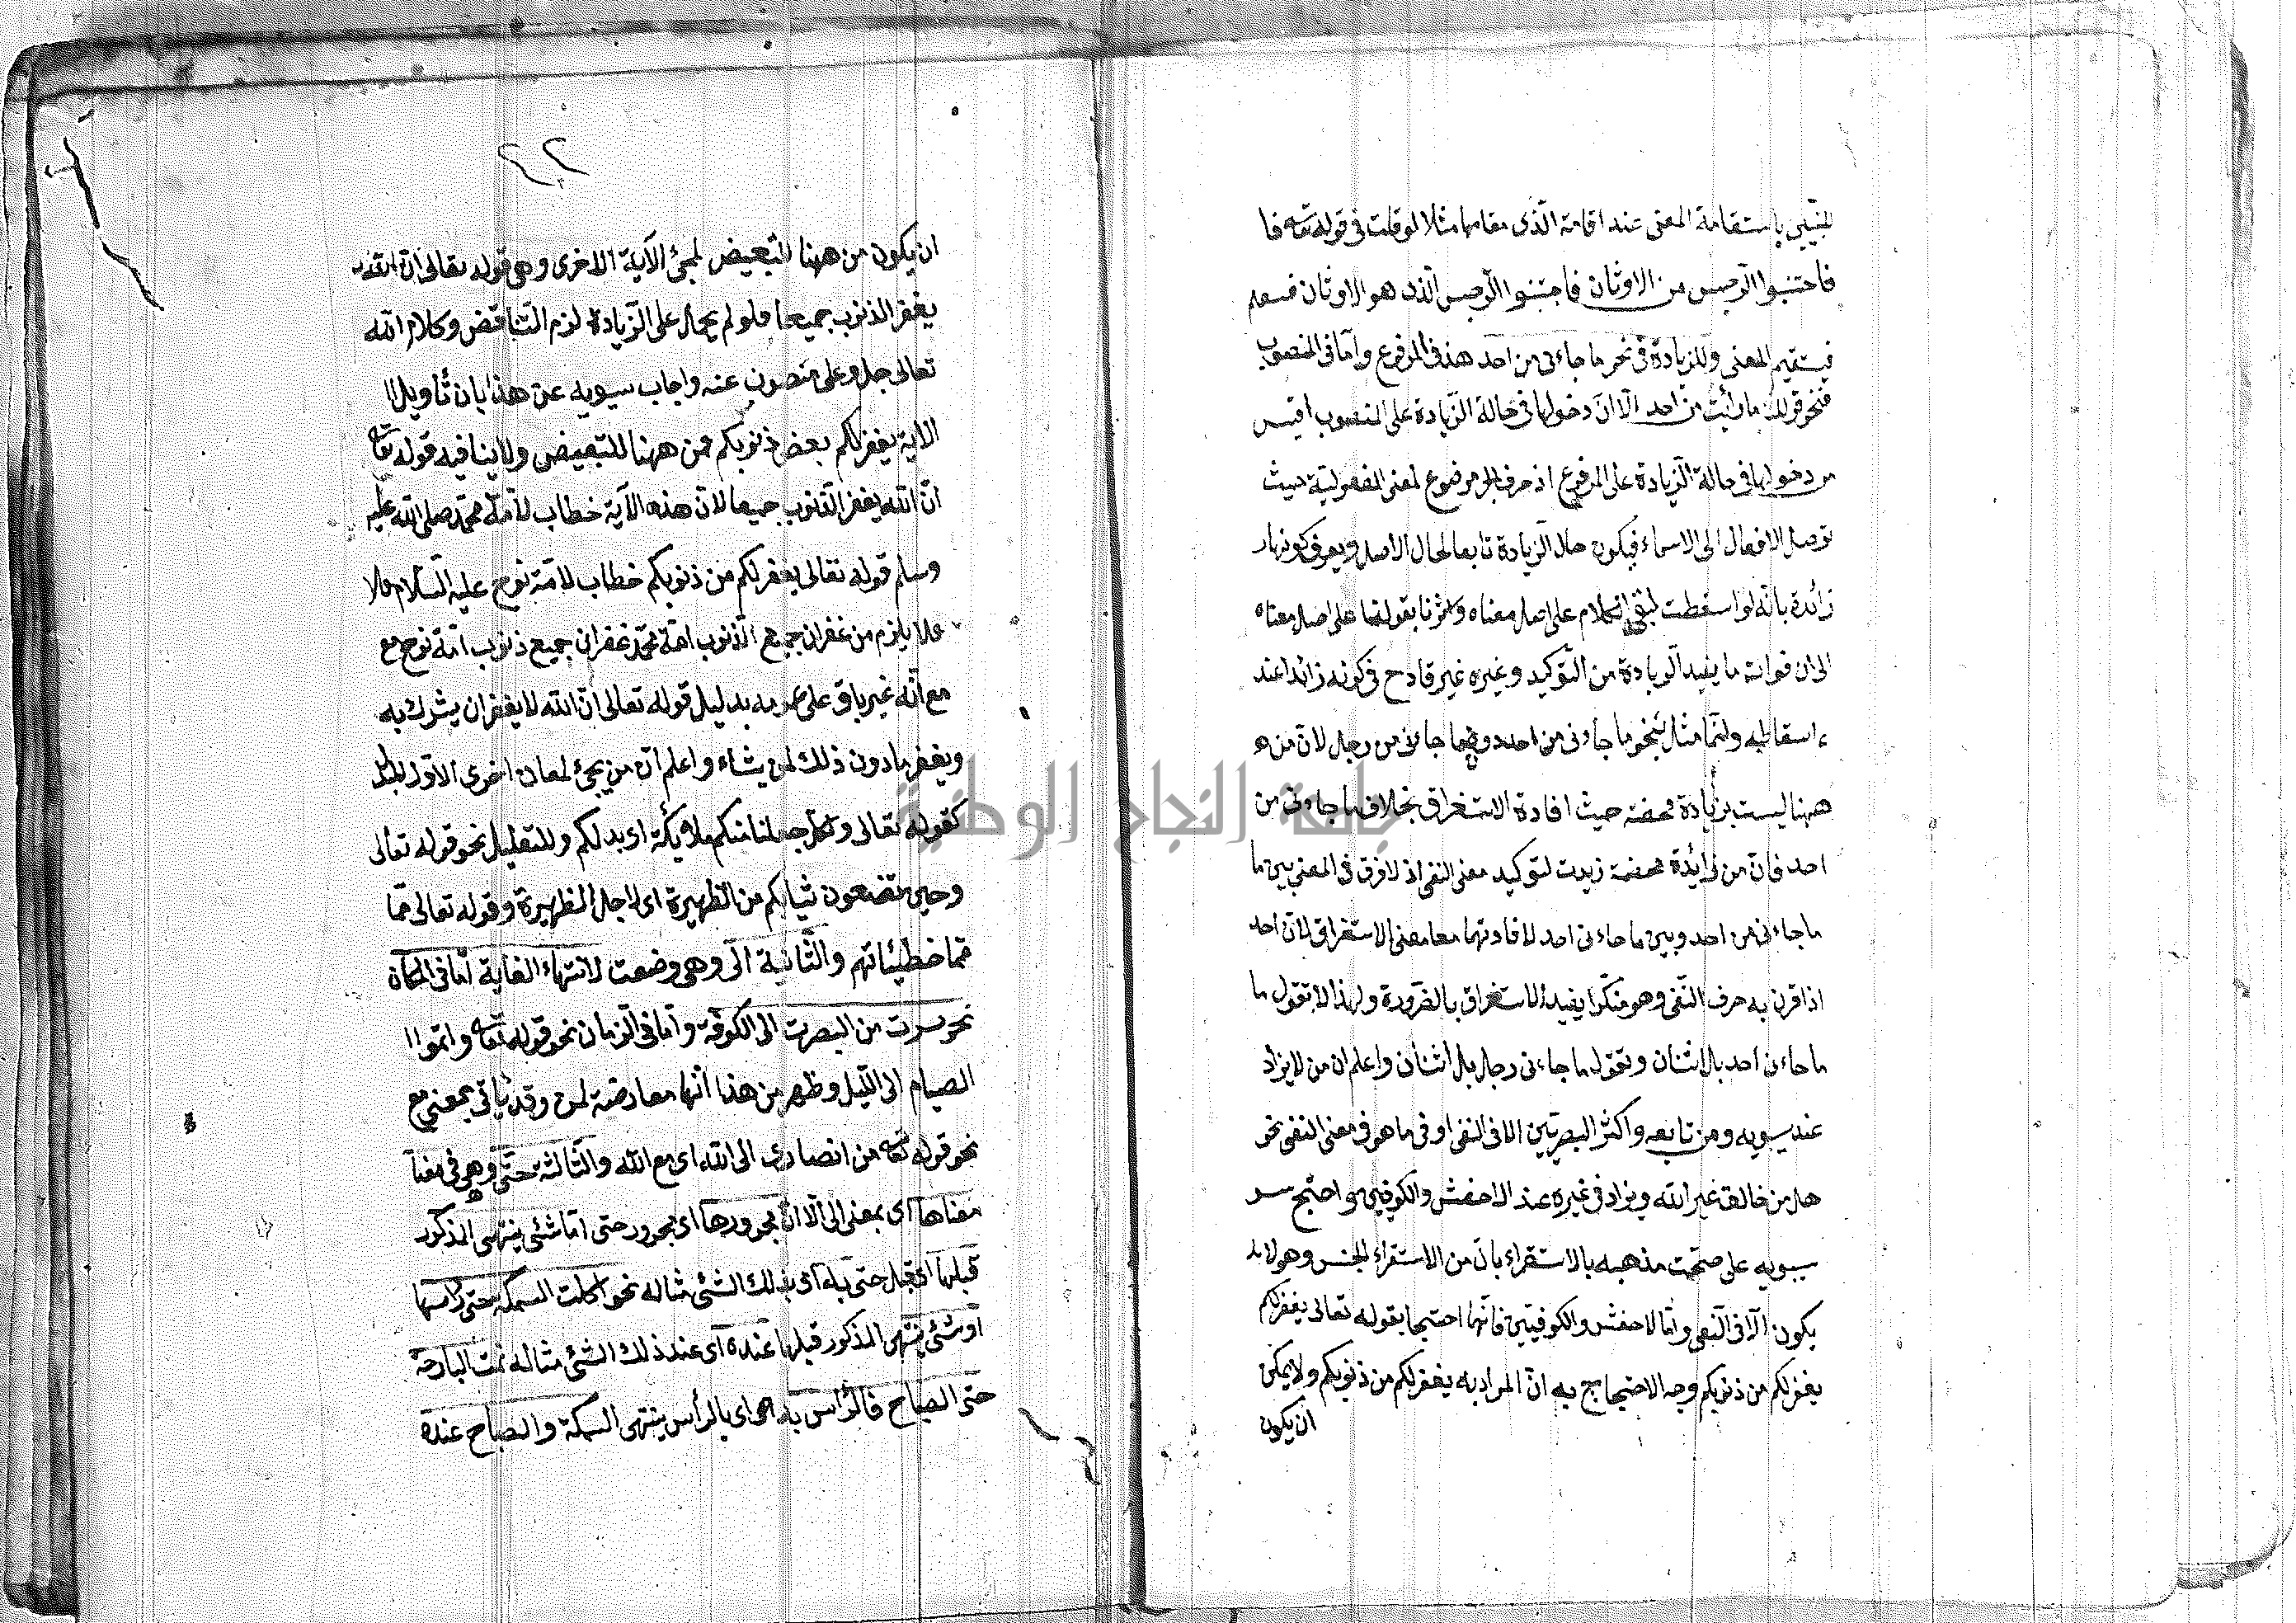 للتبيين باستقامة المعنى عند اقامة الّذى مقامها مثلا لو قلت فى قوله تعه فا
فاجتنبوا الرجس من الاوثان فاجتنبوا الرجس الّذى هو الاوثان
فيستقيم المعنى وللزيادة فى نحو ما جاءنى من احد هذا فى المرفوع وامّا فى المنصوب
فنحو قولك ما رأيت من احد الّا انّ دخولها فى حالة الزّيادة على المنصوب اقيس
من دخولها فى حالة الزّيادة على المرفوع اذ حرف الجر موضوع لمعنى المفعوليّة حيث
توصل الافعال الى الاسماء فيكون حال الزيادة تابعا لحال الاصل ويعرف كونها
زائدة بانّه لو اسقطت لبقى الكلام على اصل معناه وانّما بقولنا على اصل معناه
الى ان فوات ما يفيد الزيادة من التّوكيد وغيره غير قادح فى كونه زائدا عند
اسقاطه وانّما مثّل بنحو ما جاءنى من احد دون ما جاءنى من رجل لانّ من
ههنا ليست بزيادة محضة حيث افادة الاستغراق بخلاف ما جاءنى من
احد فانّ من زائدة محضة زيدت لتوكيد معنى النفى اذ لا فرق فى المعنى بين ما
ما جاءنى من احد وبين ما جاءنى احد لافادتهما معا معنى الاستغراق لانّ احد
اذا قرن به حرف النّفى وهو منكّر يفيد الاستغراق بالضّرورة ولهذا لا تقول ما
ما جاءنى احد بل اثنان وتقول ما جاءنى رجل بل اثنان واعلم ان من لا يزاد
عند سيبويه ومن تابعه واكثر البصريّين الا فى النفى او فى ما هو فى معنى النفى نحو
هل من خالق غير الله ويزاد فى غيره عند الاخفش والكوفيين واحتج سـ
سيبويه على صحّت مذهبه بالاستقراء بانّ من الاستقراء الجنس وهو لا
يكون الّا فى النّفى وامّا لاخفش والكوفيّين فانّهما احتجا بقوله تعالى يغفر لكم
يغفر لكم من ذنوبكم وجه الاحتجاج به انّ المراد به يغفر لكم من ذنوبكم ولا يمكن
ان يكون
٢٢
ان يكون من ههنا للتبعيض لمجئ الآية الاخرى وهى قوله تعالى انّ الله
يغفر الذنوب جميعا فلو لم يحمل على الزّيادة لزم التّناقض وكلام الله
تعالى جل وعلى مصون عنه واجاب سيبويه عن هذا بان تأويل ا
الاية يغفر لكم بعض ذنوبكم فمن ههنا للتبعيض ولا ينافيه قوله تعه
انّ الله يغفر الذّنوب جميعا لانّ هذه الآية خطاب لامّة محمّد صلى الله عليه
وسلم قوله تعالى يغفر لكم من ذنوبكم خطاب لامّة نوح عليه السّلام فلا
فلا يلزم من غفران جميع الذّنوب امّة محمّد غفران جميع ذنوب امّة نوح مع
مع انّه غير باق على عمومه بدليل قوله تعالى انّ الله لا يغفر ان يشرك به
ويغفر ما دون ذلك لمن يشاء واعلم انّ من يجئ لمعان اخرى الاوّل للبدل
كقوله تعالى ولو جعلنا منكم ملائكة اى بدلكم وللتقليل نحو قوله تعالى
وحين تضعون ثيابكم من الظهيرة اى لاجل الظهيرة وقوله تعالى ممّا
ممّا خطيئاتهم والثّانية الى وهى وضعت لانتهاء الغاية امّا فى المكان
نحو سرت من البصرت الى الكوفة وامّا فى الزمان نحو قوله تعه واتموا ا
الصيام الى اللّيل وظهر من هذا انّها معارضة لمن وقد يأتى بمعنى مع
نحو قوله تعه من انصارى الى الله اى مع الله والثّالث حتّى وهى فى معنا
معناها اى بمعنى الى الّا انّ مجرورها اى مجرور حتى امّا شئى ينتهى المذكور
قبلها اى قبل حتى به اى بذلك الشّئى مثاله نحو اكلت السمكة حتى رأسها
او شئى ينتهى المذكور قبلها عنده اى عند ذلك الشئى مثاله نمت البارحة
حتى الصباح فالرّأس به اى بالرأس ينتهى السمكة والصباح عنده
جامعة النجاح الوطنية